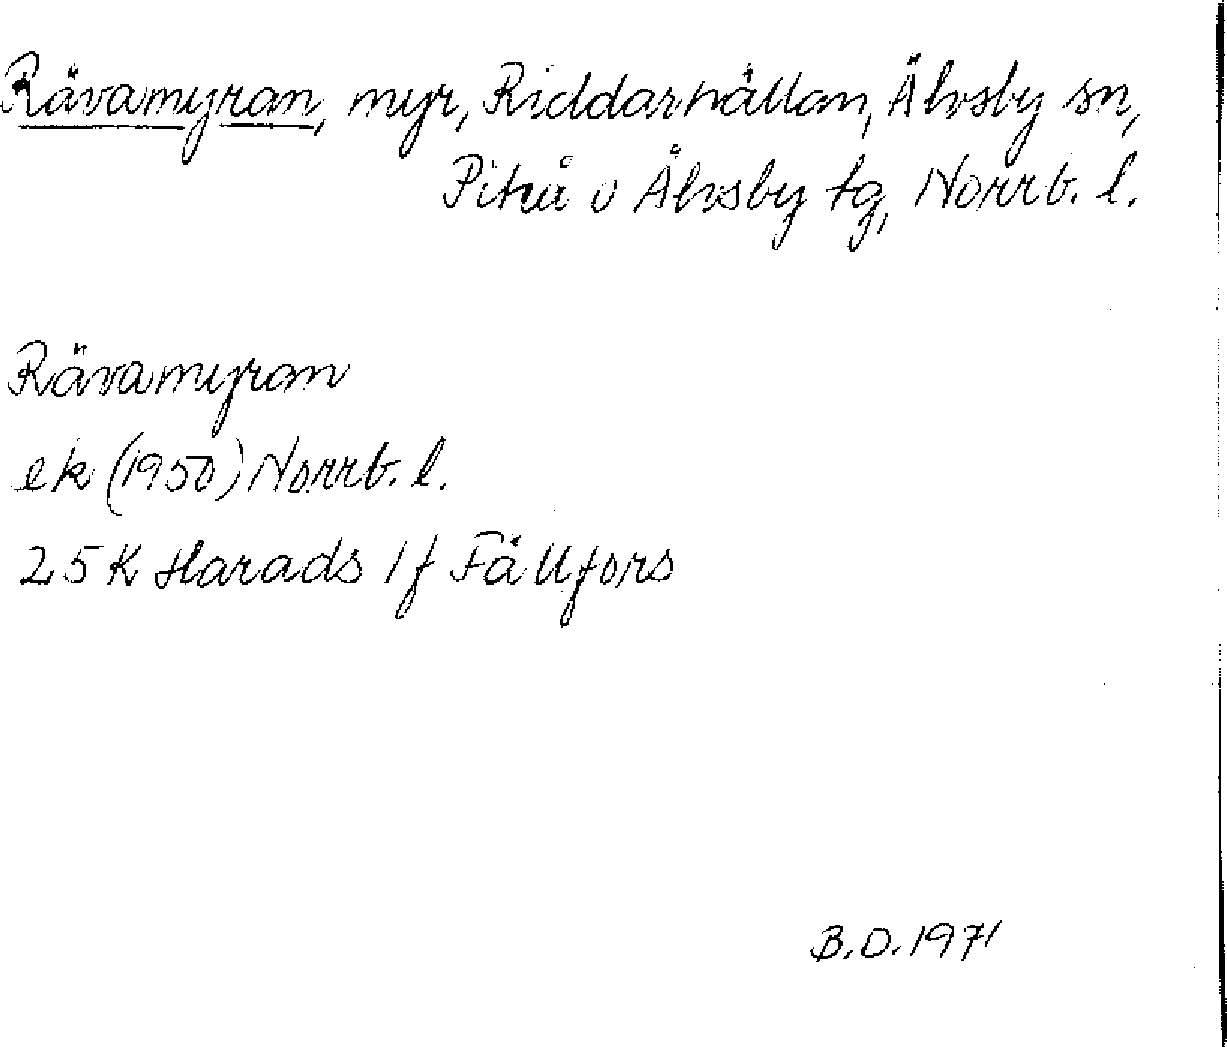 Rävamyran, myr, Riddarhällan, Älvsby sn,
Piteå o Älvsby tg, Norrb. l.
Rävamyran
ek (1950) Norrb. l.
25K Harads 1f Fällfors
B.D. 1971